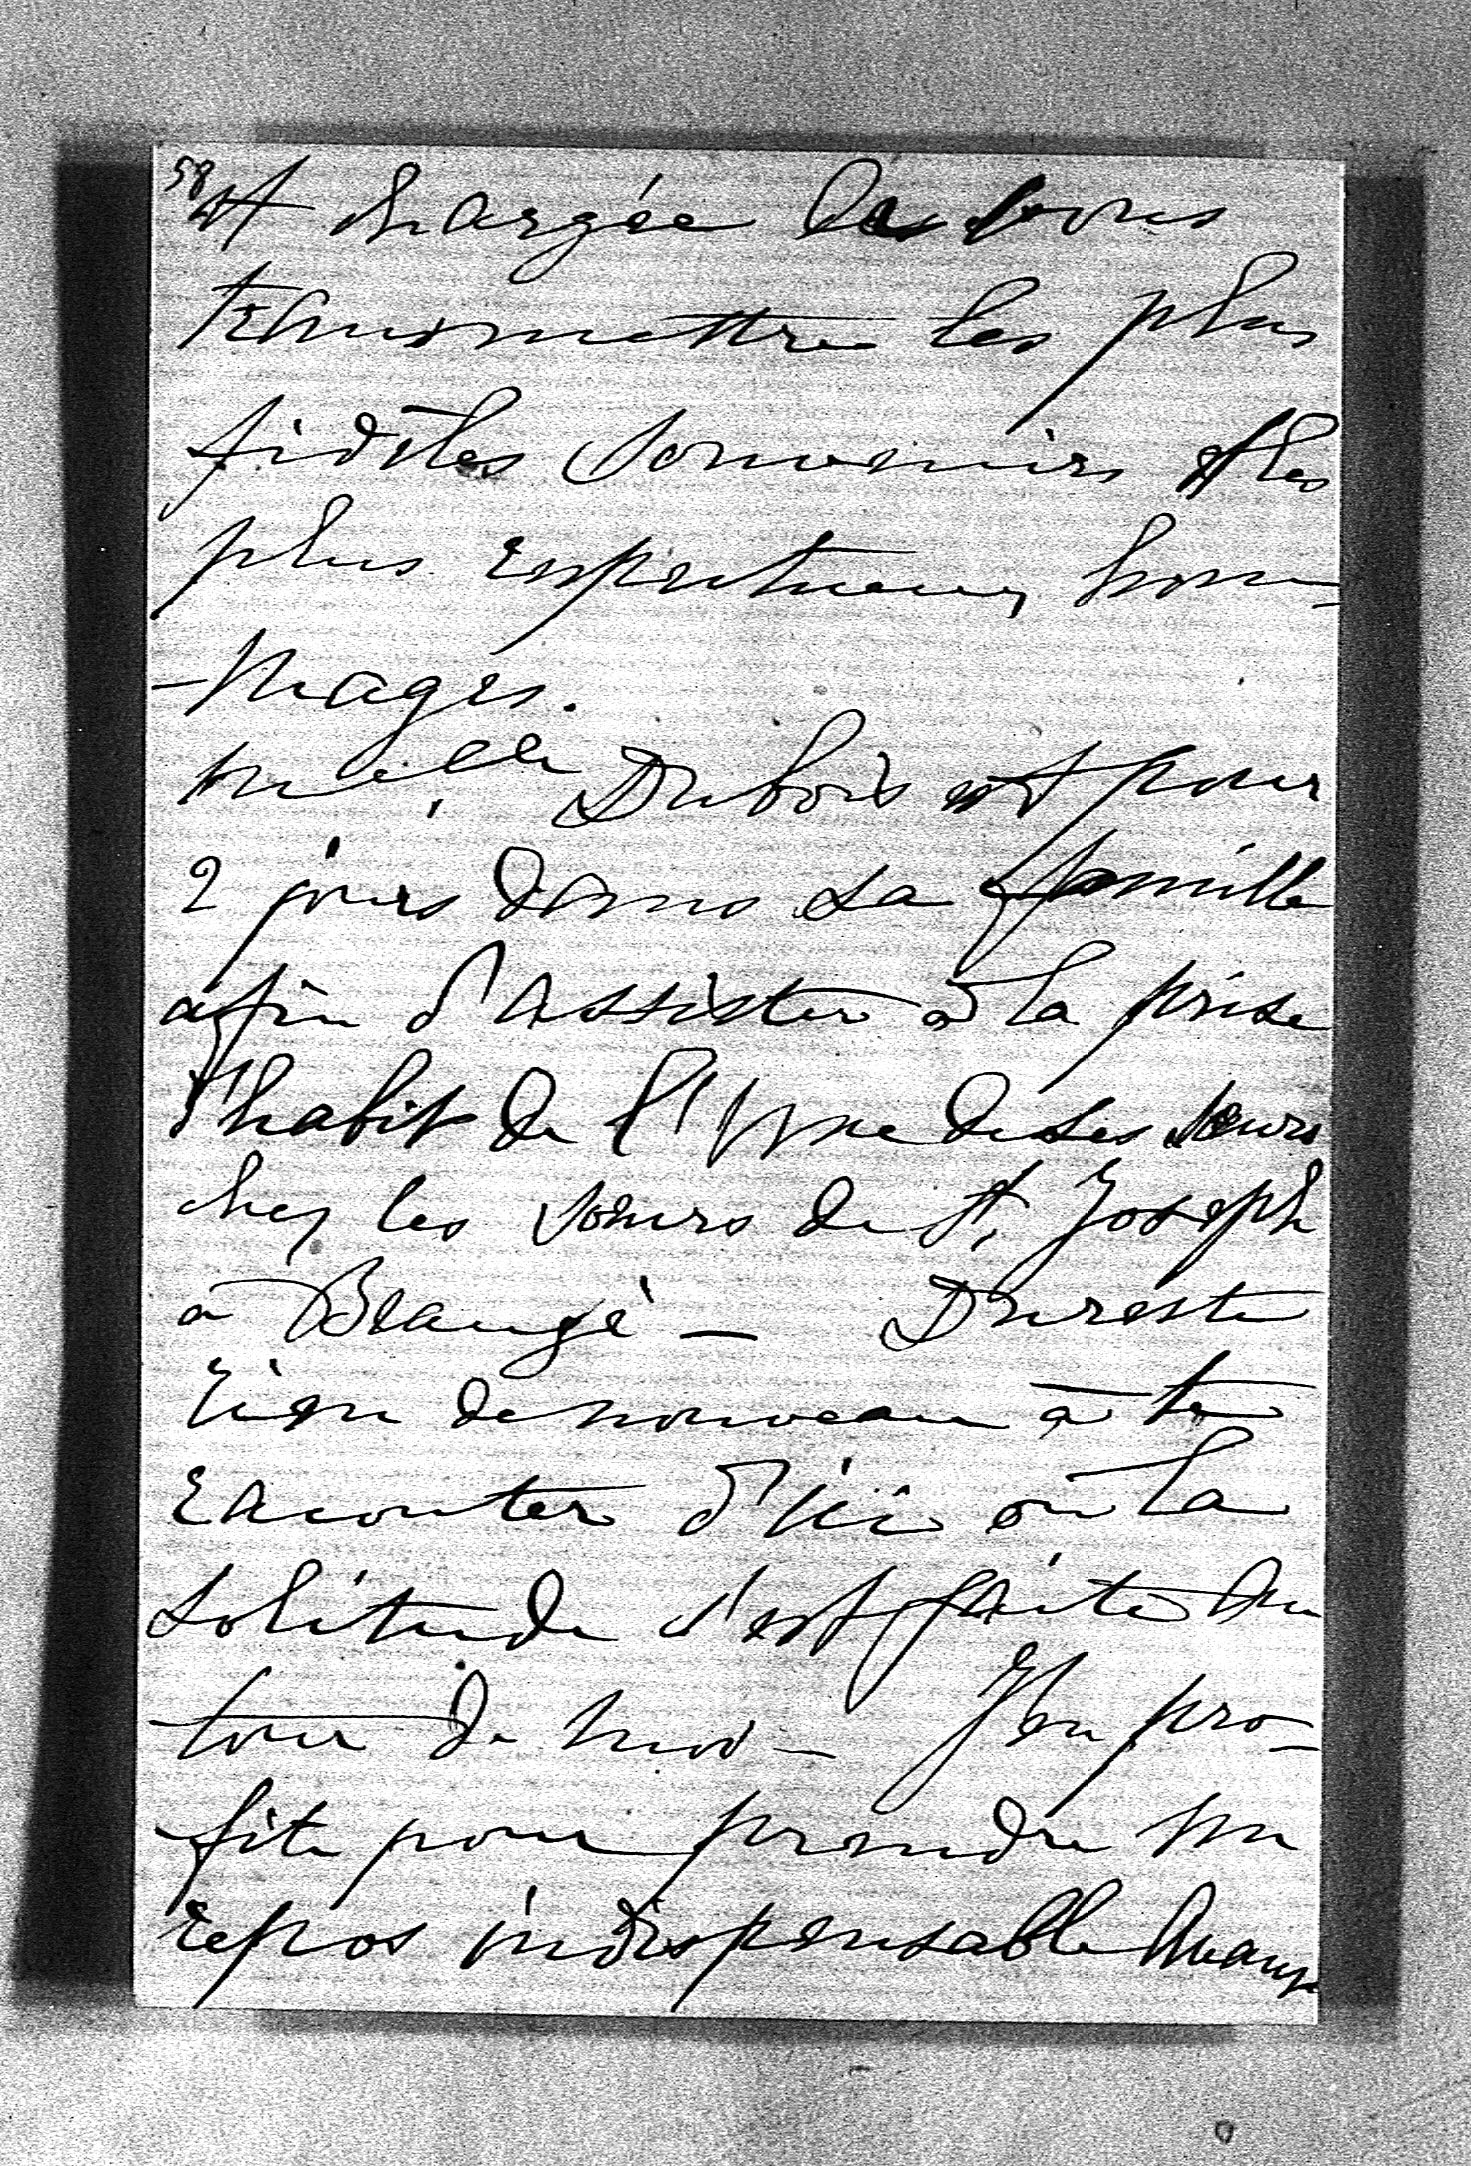 58
et chargée de vous
transmettre les plus
fidèles souvenirs et les
plus respectueux hom-
-mages.
Melle Dubois est pour
2 jours dans sa famille
afin d'assister à la prise
d'habit de l'une de ses sœurs
chez les sœurs de St. Joseph
à Beaugé — Du reste
rien de nouveau à te
raconter d'ici où la
solitude s'est faite au
tour de moi — J'en pro-
fite pour prendre un
repos indispensable